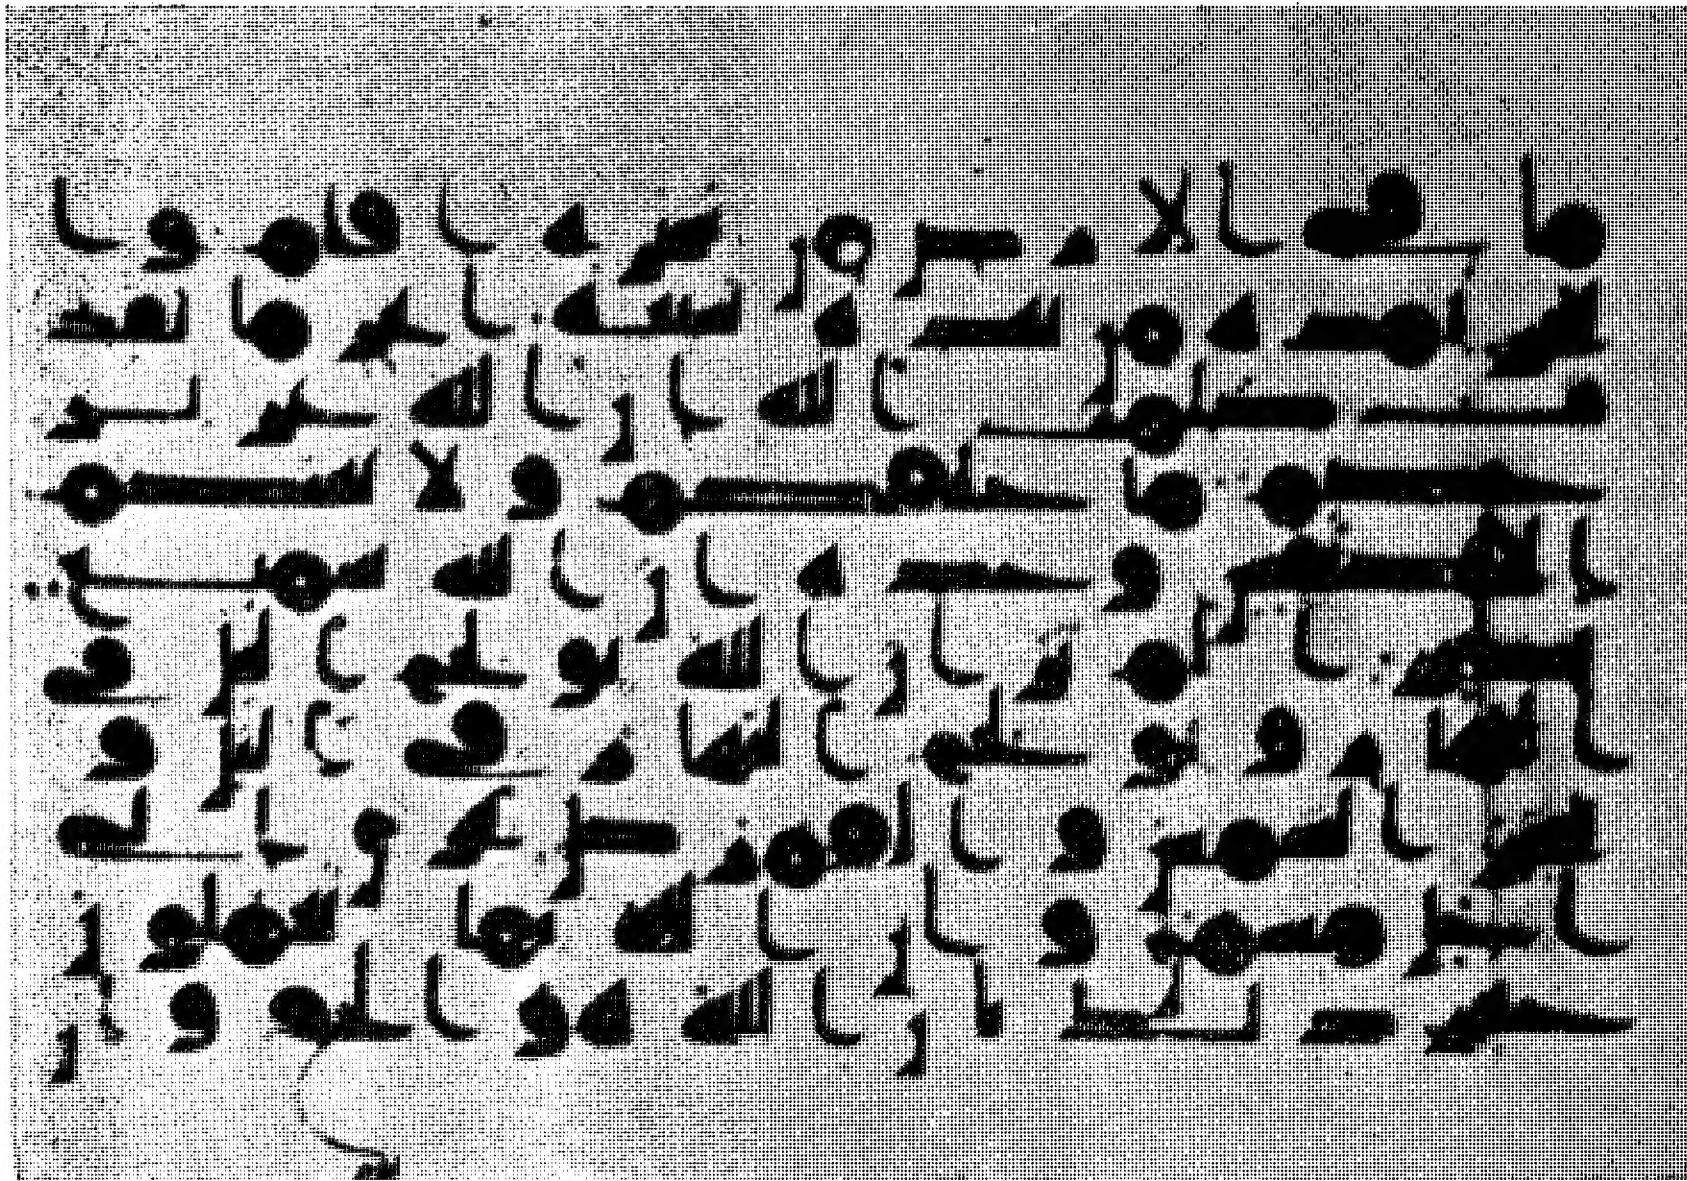 ما في الارض من شجرة اقلم وا
لبحر يمده من بعده سبعة ابحر ما نفد
ت كلمت الله ان الله عزيز
حكيم ما خلقكم ولا بعثكم
الا كنفس وحدة ان الله سميع
بصير الم تر ان الله يولج اليل في
النهار ويولج النهار في اليل و
سخر الشمس والقمر كل يجري الى
اجل مسمى وان الله بما تعملون
خبير ذلك بان الله هو الحق وان